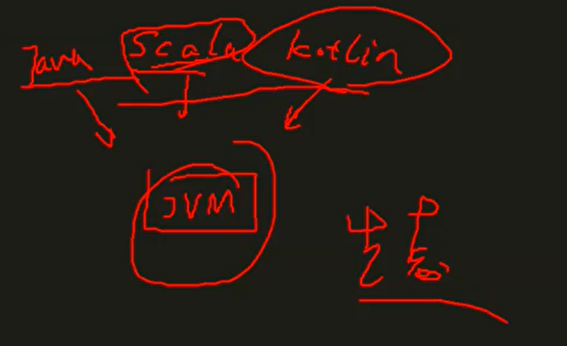 Java Scala Kotlin
JVM
生态